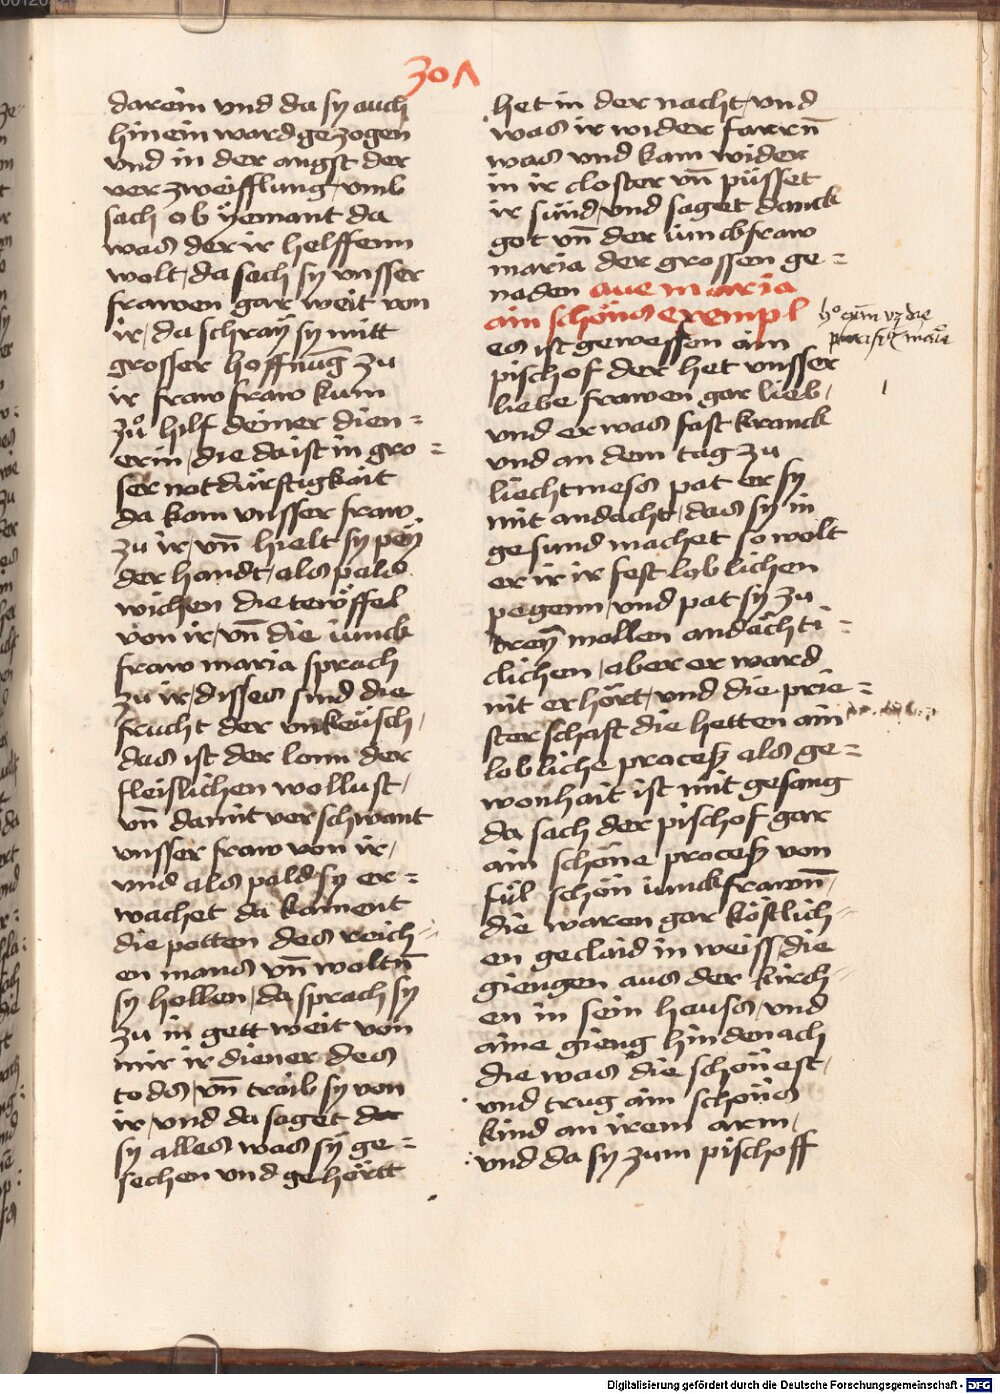 301
darein vnd da sy auch
hin ein ward gezogen
vnd in der angst der
verzweifflung vmb
sach ob yemant da
was der ir helffenn
wolt, da sach sy vnsser
frawen gar weit von
ir, da schraÿ sy mitt
grosser hoffnug zu
ir fraw fraw kum
zů hilf deiner dien=
erin, die da ist in gro=
ser notdürftigkait
da kam vnsser fraw
zu ir, vn̄ hielt sy peÿ
der handt, als pald
wichen die tewffel
von ir, vn̄ die iunck
fraw maria sprach
zu ir, disses sind die
frucht der vnkeüsch,
das ist der lonn der
fleislichen wollust,
vn̄ damit verschwant
vnsser fraw von ir,
vnd als pald sy er=
wachet da kament
die potten des reich=
en mans vn̄ woltn̄
sy hollen, da sprach sy
zu in gett weit von
mir ir diener des
todes, vn̄ traib sy von
ir, vnd da saget der
sy alles was sÿ ge=
sechen vnd gehörtt
het in der nacht, vnd
was ir wider farrn̄
was vnd kam wider
in ir closter vn̄ püsset
ir sünd, vnd saget danck
got vn̄ der iunckfraw
maria der grossen ge=
naden aue maria
ain schöns exempl
es ist gewessen ain
pischof der het vnsser
liebe frawen gar lieb,
vnd er was fast kranck
vnd an dem tag zu
liechtmess pat er sy
mit andacht, das sy in
gesund machet so wolt
er ir ir fest loblichen
pegenn, vnd pat sy zu
dreÿ mallen andächti=
clichen, aber er ward
nit erhört, vnd die prie=
sterschaft die hetten ain
lobliche process als ge=
wonhait ist mit gesang
da sach der pischof gar
ain schöne process von
fül schön iunckfrawn̄,
die waren gar köstlich=
en geclaid in weiss die
giengen aus der kirch=
en in sein hauss, vnd
aine gieng hindenach
die was die schönest,
vnd trug ain schöns
kind an irem arm,
vnd da sy zum pischoff
Digitalisierung gefördert durch die Deutsche Forschungsgemeinschaft - DFG